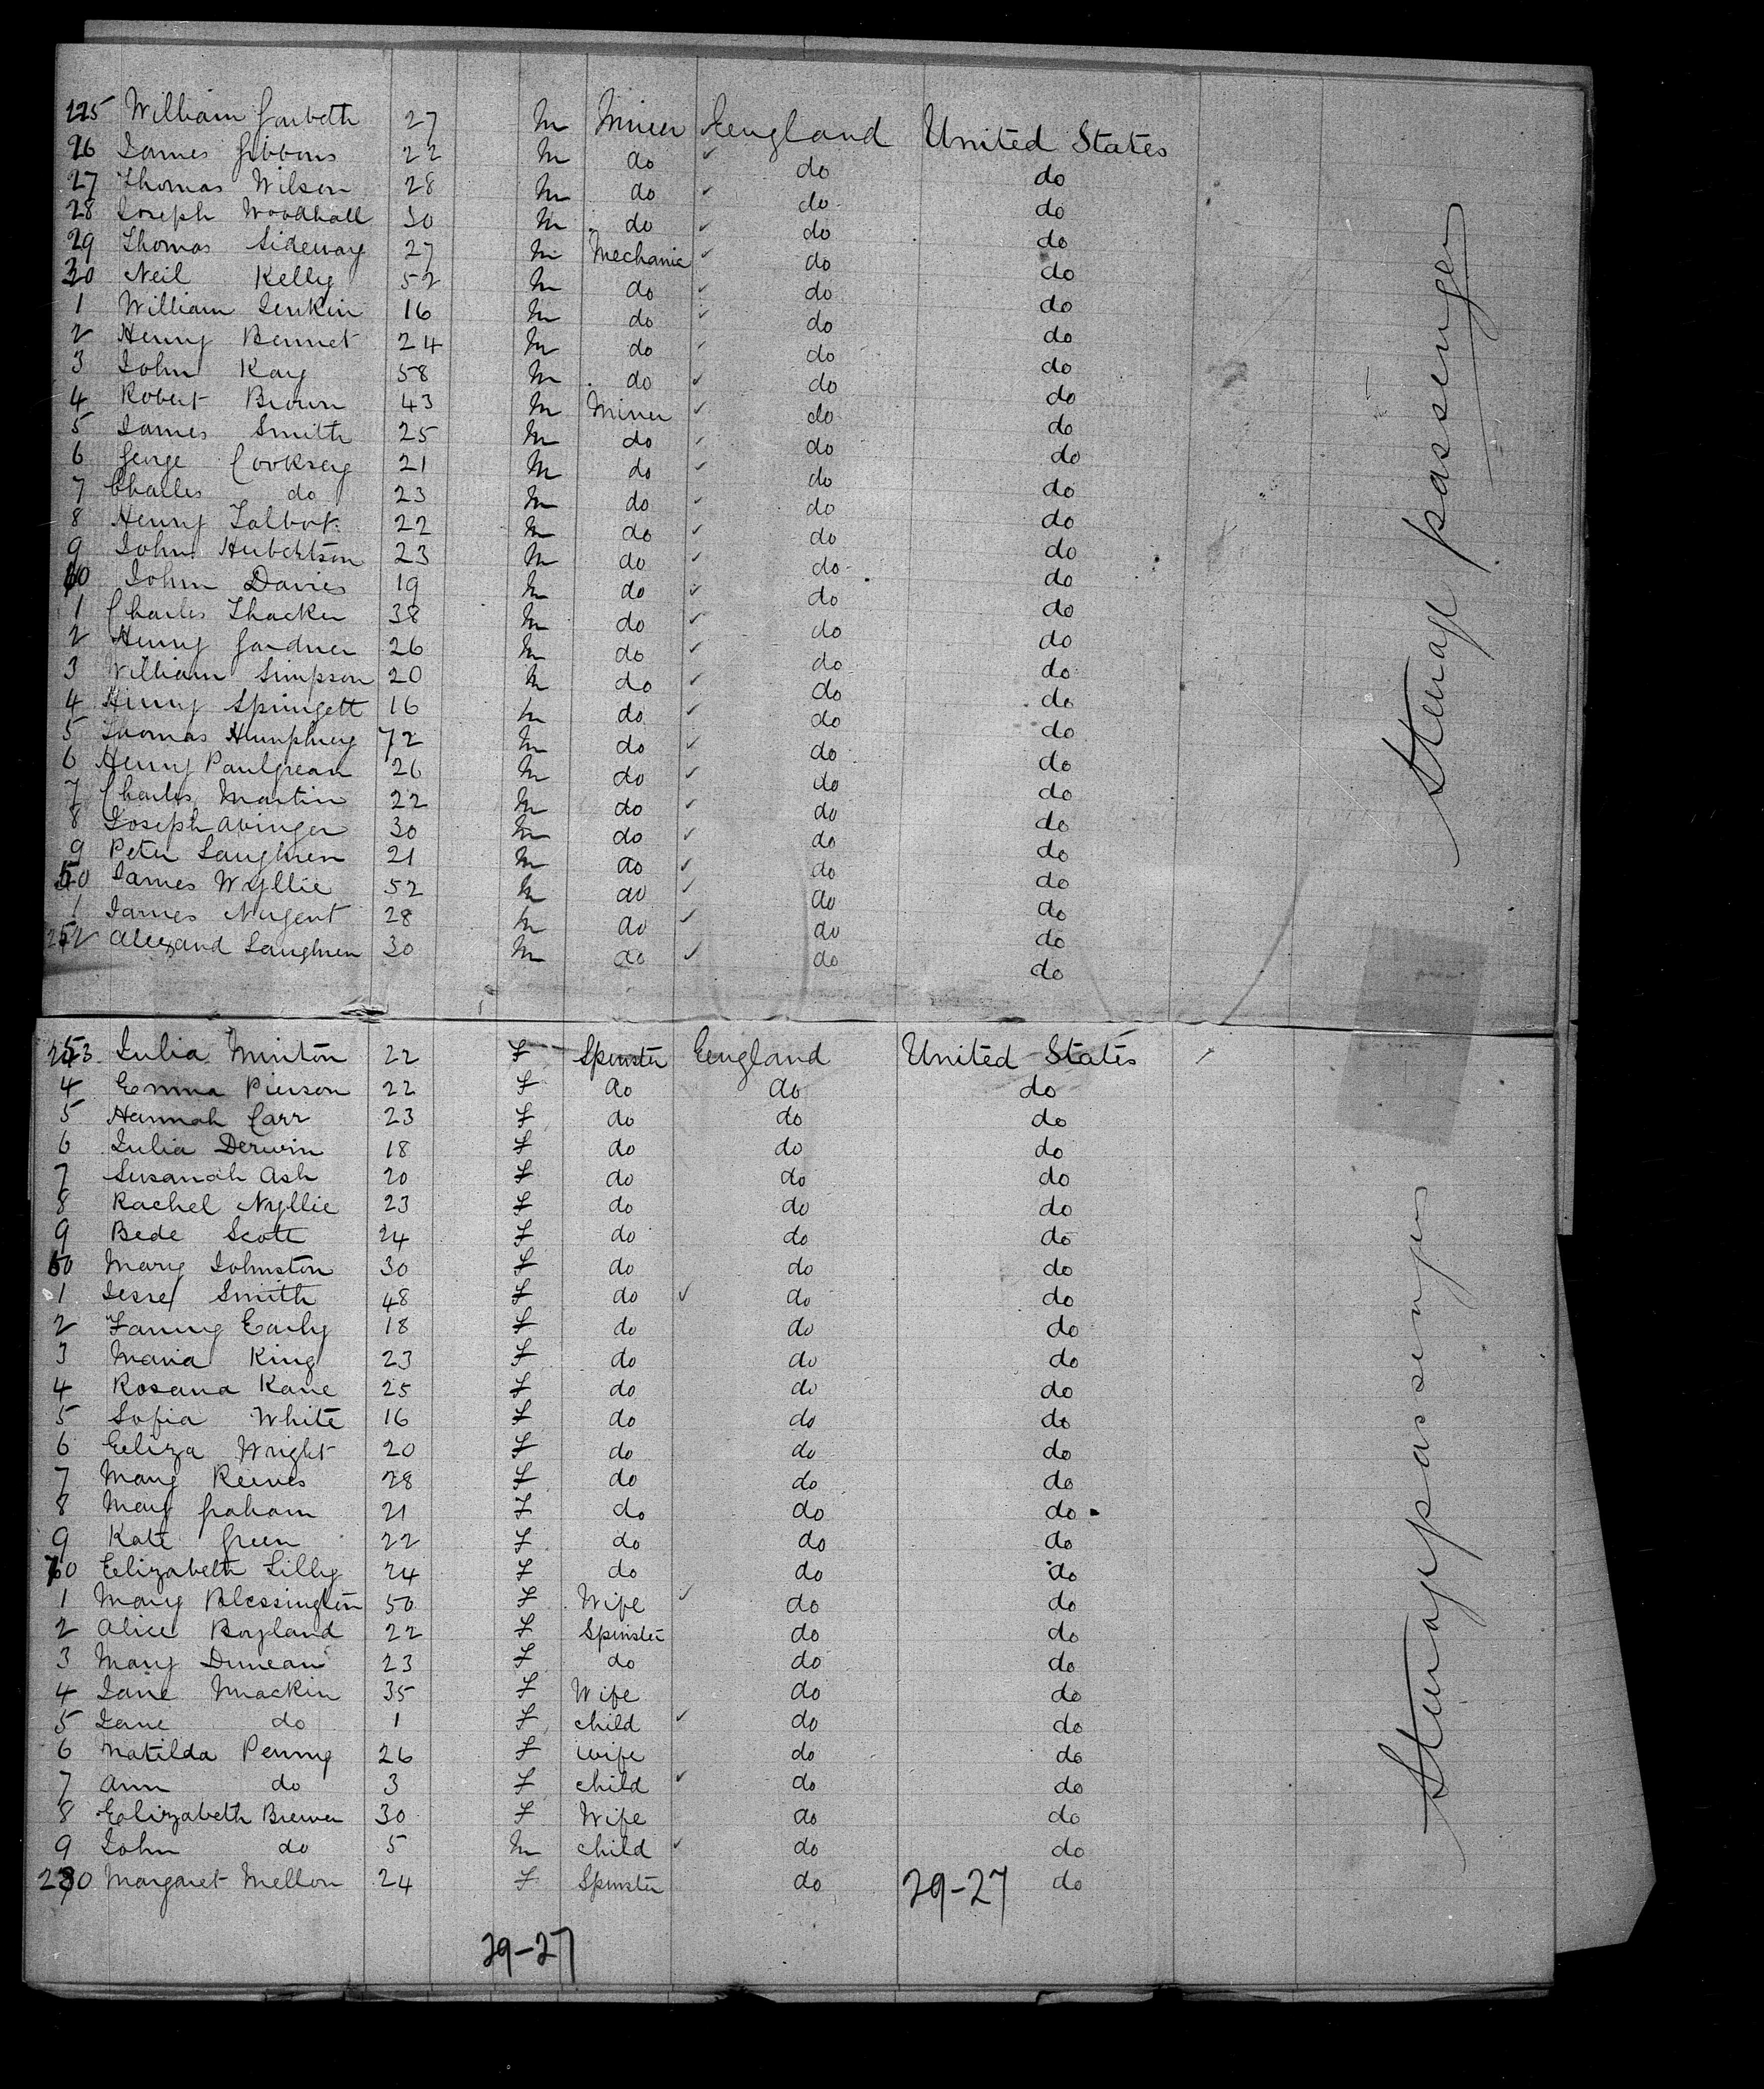 225 William Garbeth 27 M Miner England United States
26 James Gibbons 22 M do do do
27 Thomas Wilson 28 M do do do
28 Joseph Woodhall 30 M do do do
29 Thomas Sideway 27 M Mechanic do do
30 Neil Kelly 52 M do do do
1 William Jenkin 16 M do do do
2 Henry Bennet 24 M do do do
3 John Kay 58 M do do do
4 Robert Brown 43 M Miner do do
5 James Smith 25 M do do do
6 George Cooksey 21 M do do do
7 Charles do 23 M do do do
8 Henry Talbot 22 M do do do
9 John 23 M do do do
40 John Davies 19 M do do do
1 Charles Thacker 38 M do do do
2 Henry Gardner 26 M do do do
3 William Simpson 20 M do do do
4 Henry Springett 16 M do do do
5 Thomas Humphrey 72 M do do do
6 Henry Paulgrean 26 M do do do
7 Charles Martin 22 M do do do
8 Joseph Abinger 30 M do do do
9 Peter Laughren 21 M do do do
50 James Wyllie 52 M do do do
1 James Nugent 28 M do do do
252 Alexand Laughren 30 M do do do
Sterage passenger
253 Julia Minton 22 F Spinster England United States
4 Emma Pierson 22 F do do do
5 Hannah Carr 23 F do do do
6 Julia Derwin 18 F do do do
7 Susanah Ash 20 F do do do
8 Rachel Nyllie 23 F do do do
9 Bede Scott 24 F do do do
60 Mary Johnston 30 F do do do
1 Jesse Smith 48 F do do do
2 Fanny Early 18 F do do do
3 Maria King 23 F do do do
4 Rosana Kane 25 F do do do
5 Sofia White 16 F do do do
6 Eliza Wright 20 F do do do
7 Mary Reeves 28 F do do do
8 Mary Graham 21 F do do do
9 Kate Green 22 F do do do
70 Elizabeth Lilly 24 F do do do
1 Mary Blessington 50 F Wife do do
2 Alice Boyland 22 F Spinster do do
3 Mary Duncan 23 F do do do
4 Jane Mackin 35 F Wife do do
5 Jane do 1 F child do do
6 Matilda Penny 26 F wife do do
7 Ann do 3 F child do do
8 Elizabeth Brewer 30 F Wife do do
9 John do 5 M child do do
280 Margaret Mellon 24 F Spinster do 29-27 do
29-27
Sterage passenger